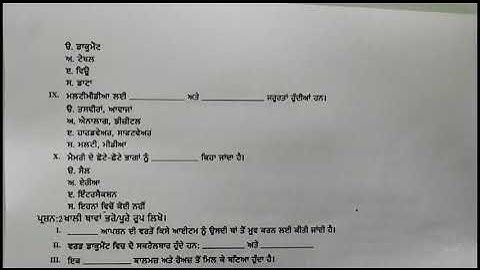 ੳ. ਡਾਕੂਮੈਂਟ
ਅ. ਟੇਬਲ
ੲ. ਵਿਊ
ਸ. ਡਾਟਾ
IX. ਮਲਟੀਮੀਡੀਆ ਲਈ __________ ਅਤੇ __________ ਜਰੂਰਤਾਂ ਹੁੰਦੀਆਂ ਹਨ।
ੳ. ਤਸਵੀਰਾਂ, ਆਵਾਜਾਂ
ਅ. ਐਨਾਲਾਗ, ਡੀਜ਼ੀਟਲ
ੲ. ਹਾਰਡਵੇਅਰ, ਸਾਫਟਵੇਅਰ
ਸ. ਮਲਟੀ, ਮੀਡੀਆ
X. ਮੈਮਰੀ ਦੇ ਛੋਟੇ-ਛੋਟੇ ਭਾਗਾਂ ਨੂੰ __________ ਕਿਹਾ ਜਾਂਦਾ ਹੈ।
ੳ. ਸੈੱਲ
ਅ. ਏਰੀਆ
ੲ. ਇੰਟਰਸੈਕਸ਼ਨ
ਸ. ਇਹਨਾਂ ਵਿਚੋਂ ਕੋਈ ਨਹੀਂ
ਪ੍ਰਸ਼ਨ:2 ਖਾਲੀ ਥਾਵਾਂ ਭਰੋ/ਪੂਰੇ ਰੂਪ ਲਿਖੋ।
I. ______ ਆਪਸ਼ਨ ਦੀ ਵਰਤੋਂ ਕਿਸੇ ਆਈਟਮ ਨੂੰ ਉਸਦੀ ਥਾਂ ਤੋਂ ਮੂਵ ਕਰਨ ਲਈ ਕੀਤੀ ਜਾਂਦੀ ਹੈ।
II. ਵਰਡ ਡਾਕੂਮੈਂਟ ਵਿਚ ਦੋ ਸਕਰੋਲਬਾਰ ਹੁੰਦੇ ਹਨ: __________ ਅਤੇ __________
III. ਇਕ __________ ਕਾਲਮਜ਼ ਅਤੇ ਰੋਅਜ਼ ਤੋਂ ਮਿਲ ਕੇ ਬਣਿਆ ਹੁੰਦਾ ਹੈ।